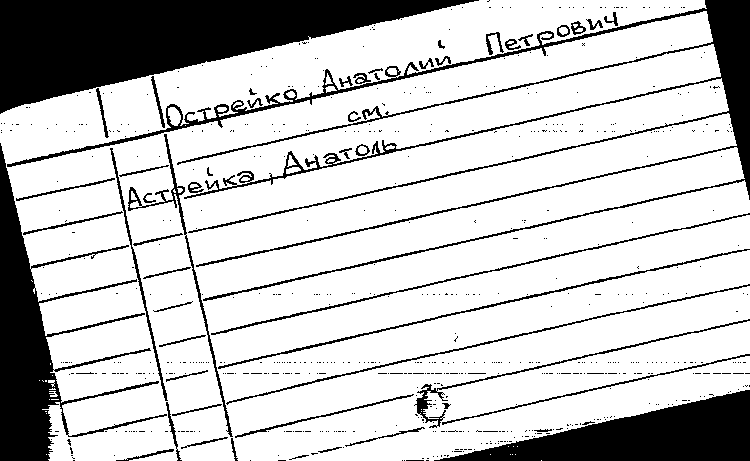 Острейко, Анатолий Петрович
см.
Астрейка, Анатоль